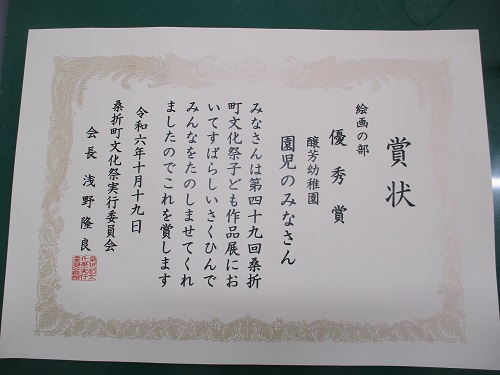 賞状
絵画の部
優秀賞
醸芳幼稚園
園児のみなさん
みなさんは第四十九回桑折
町文化祭子ども作品展にお
いてすばらしいさくひんで
みんなをたのしませてくれ
ましたのでこれを賞します
令和六年十月十九日
桑折町文化祭実行委員会
会長 浅野隆良